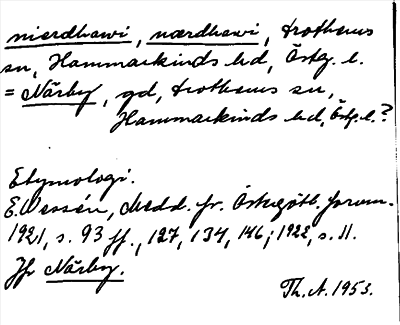 nierdhawi, nærdhawi, Trothems
sn, Hammarkinds hd, Östg. l.
= Närby, gd, Trothems sn,
Hammarkinds hd, Östg. l.?
Etymologi.
E. Wessén, Medd. fr. Östergötl. fornm.
1921, s. 93 ff., 127, 134, 146; 1922, s. 11.
Jfr Närby.
Th. A. 1953.